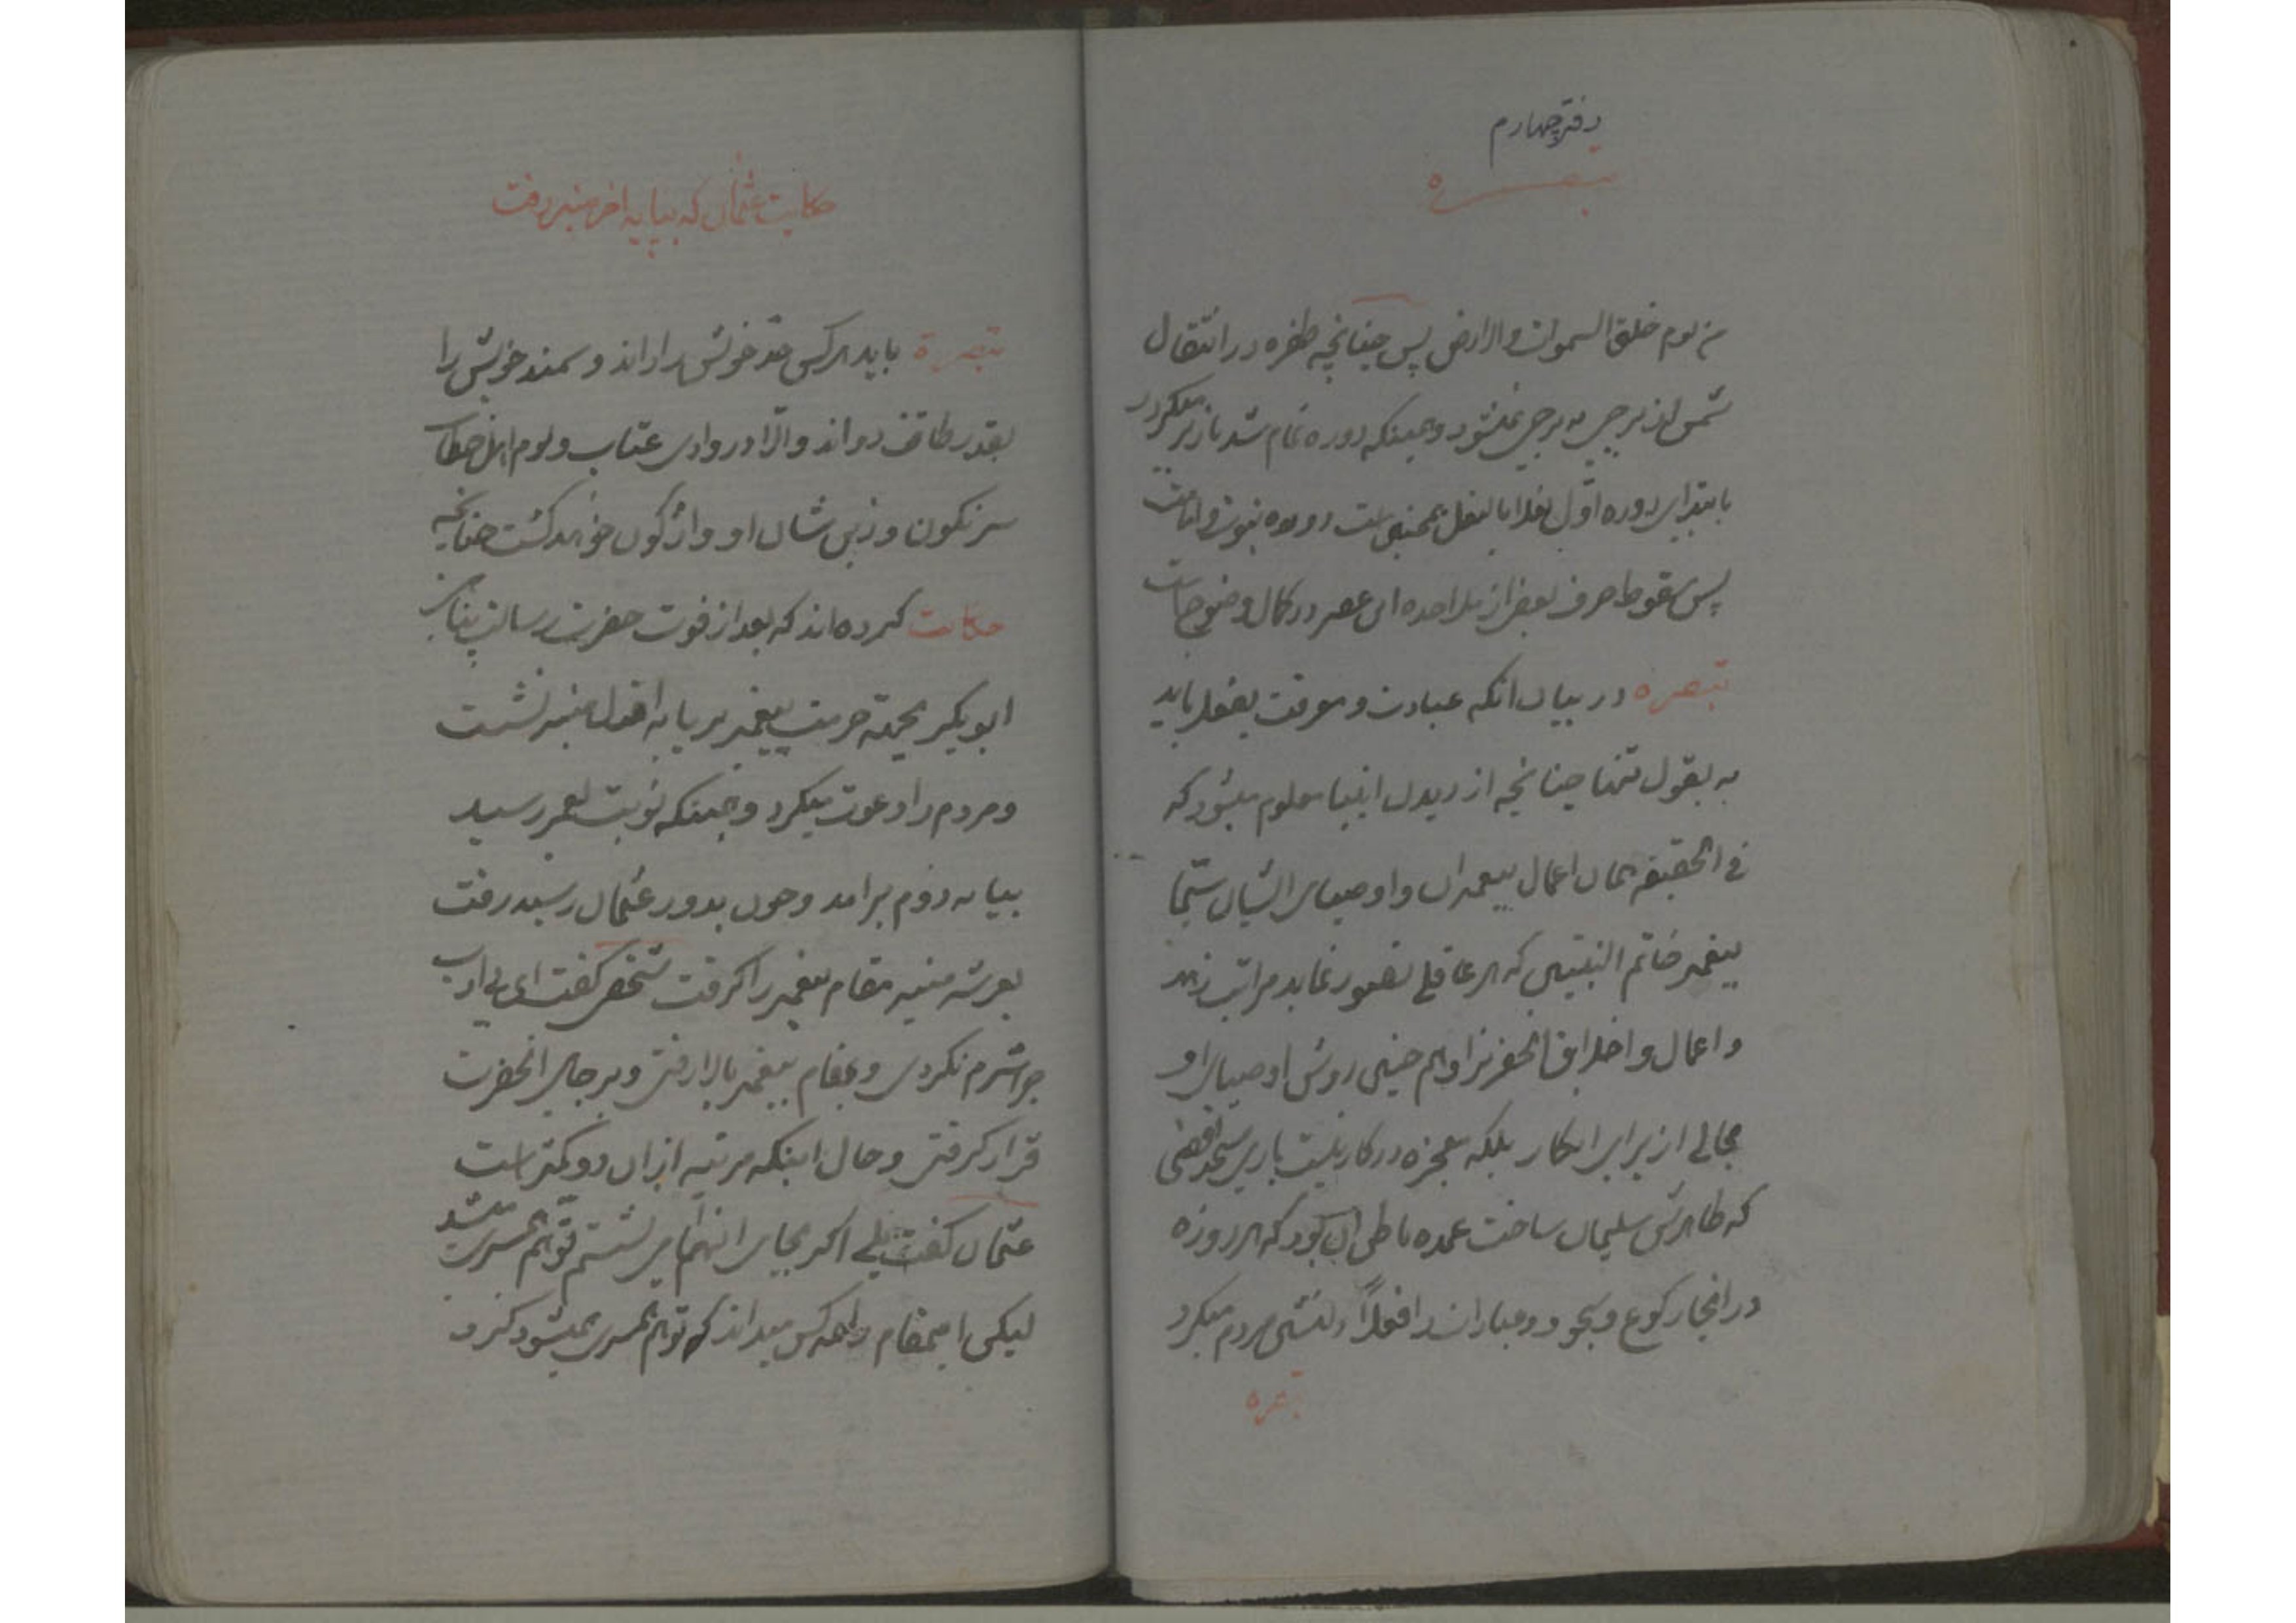 دفتر چهارم
تبصره
من یوم خلق السموات والارض پس چنانچه طفره در انتقال
شمس از برجی به برجی نمیشود و همینکه دوره تمام شد باز بر میگردد
بابتدای دوره اول نعلا بالنعل همچنین است دوره نبوت و امامت
پس سقوط حرف بعض از ملاحده این عصر در کمال وضوح است
تبصره در بیان انکه عبادت و معرفت بفعل باید
نه بقول تنها چنانچه از دیدن انبیا معلوم میشود که
فی الحقیقه همان اعمال پیغمبران و اوصیای ایشان سیما
پیغمبر خاتم النبیین که هر عاقلی تصور نماید مراتب زهد
و اعمال و اخلاق انحضرترا و هم چنین روش اوصیای او
مجالی از برای انکار بلکه معجزه در کار نیست باری مسجد اقصی
که ظاهرش سلیمان ساخت عمده باطن ان بود که هر روزه
در انجا رکوع و سجود و عبادات را فعلاً دلنشین مردم میکرد
تبصره
حکایت عثمان که بپایه اخر منبر رفت
تبصره باید هر کس حد خویش را داند و سمند خویش را
بقدر طاقت دواند و الا در وادی عتاب و لوم اهل خطاب
سرنگون و زین شان او واژگون خواهد گشت چنانچه
حکایت کرده اند که بعد از فوت حضرت رسالت پناهی
ابوبکر بجهة حرمت پیغمبر بر پایه اول منبر نشست
و مردم را دعوت میکرد و همینکه نوبت بعمر رسید
بپایه دوم برامد و چون بدور عثمان رسید رفت
بعرشه منبر مقام پیغمبر را گرفت شخصی گفت ای بی ادب
چرا شرم نکردی و بمقام پیغمبر بالا رفتی و بر جای انحضرت
قرار گرفتی و حال اینکه مرتبه از ان دو کمتر است
عثمان گفت بلی اگر بجای انها می نشستم توهم همسری میشد
لیکن اینمقام را همه کس میداند که توهم همسری نمیشود کرد